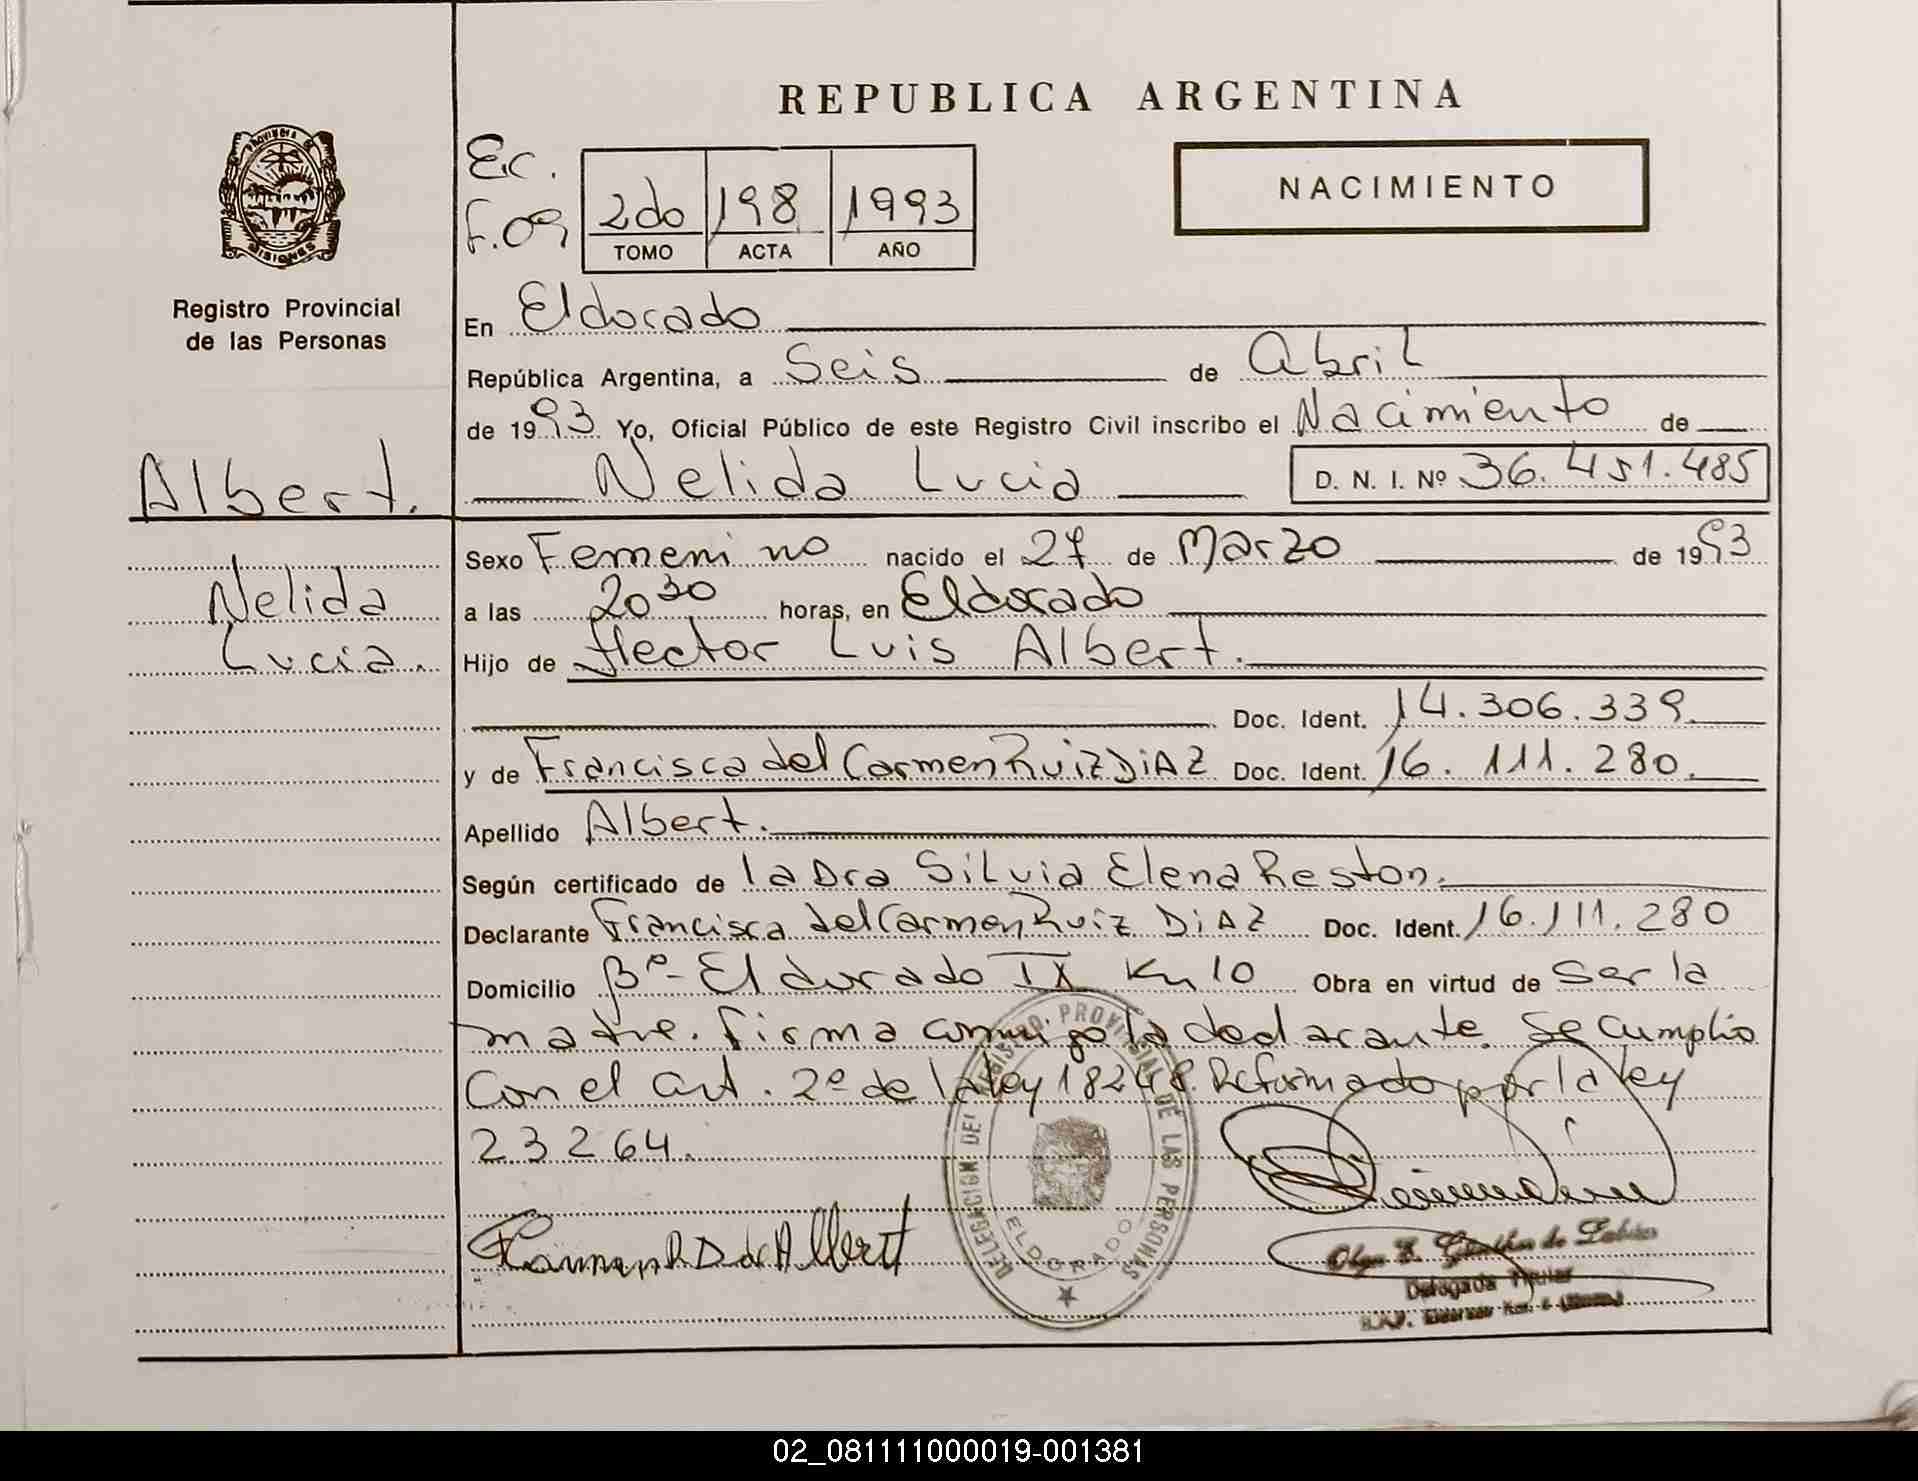 REPUBLICA ARGENTINA
PROVINCIA DE
MISIONES
Registro Provincial
de las Personas
Ec.
F.09
2do 198 1993
TOMO ACTA AÑO
NACIMIENTO
En Eldorado
República Argentina, a Seis de abril
de 1993 Yo, Oficial Público de este Registro Civil inscribo el Nacimiento de
Albert.
Nelida Lucia D. N. I. Nº 36.451.485
Sexo Femenino nacido el 27 de Marzo de 1993
Nelida
a las 20 30 horas, en Eldorado
Lucia.
Hijo de Hector Luis Albert.
Doc. Ident. 14.306.339.
y de Francisca del Carmen Ruiz DiAZ Doc. Ident. 16.111.280.
Apellido Albert.
Según certificado de la Dra Silvia Elena Reston.
Declarante Francisca del Carmen Ruiz DiAZ Doc. Ident. 16.111.280
Domicilio Bº- Eldorado IX Km 10 Obra en virtud de Ser la
madre. Firma conmigo la declarante. Se Cumplio
Con el art. 2º de la ley 18248. Reformado por la ley
23264.
DELEGACION DEL REGISTRO PROVINCIAL DE LAS PERSONAS
ELDORADO
Carmen R D de Albert
Delegada Titular
02_081111000019-001381